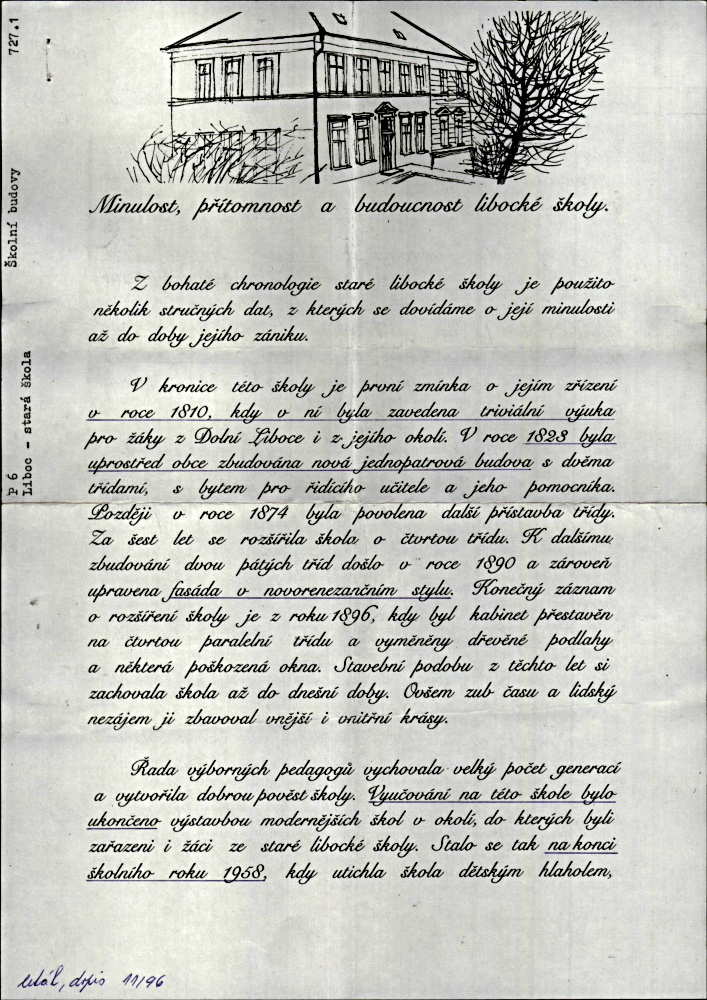 727.1
Školní budovy
P 6
Liboc - stará škola
Minulost, přítomnost a budoucnost libocké školy.
Z bohaté chronologie staré libocké školy je použito
několik stručných dat, z kterých se dovídáme o její minulosti
až do doby jejího zániku.
V kronice této školy je první zmínka o jejím zřízení
v roce 1810, kdy v ní byla zavedena triviální výuka
pro žáky z Dolní Liboce i z jejího okolí. V roce 1823 byla
uprostřed obce zbudována nová jednopatrová budova s dvěma
třídami, s bytem pro řídícího učitele a jeho pomocníka.
Později v roce 1874 byla povolena další přístavba třídy.
Za šest let se rozšířila škola o čtvrtou třídu. K dalšímu
zbudování dvou pátých tříd došlo v roce 1890 a zároveň
upravena fasáda v novorenezančním stylu. Konečný záznam
o rozšíření školy je z roku 1896, kdy byl kabinet přestavěn
na čtvrtou paralelní třídu a vyměněny dřevěné podlahy
a některá poškozená okna. Stavební podobu z těchto let si
zachovala škola až do dnešní doby. Ovšem zub času a lidský
nezájem ji zbavoval vnější i vnitřní krásy.
Řada výborných pedagogů vychovala velký počet generací
a vytvořila dobrou pověst školy. Vyučování na této škole bylo
ukončeno výstavbou modernějších škol v okolí, do kterých byli
zařazeni i žáci ze staré libocké školy. Stalo se tak na konci
školního roku 1958, kdy utichla škola dětským hlaholem,
leták, dopis 11/96